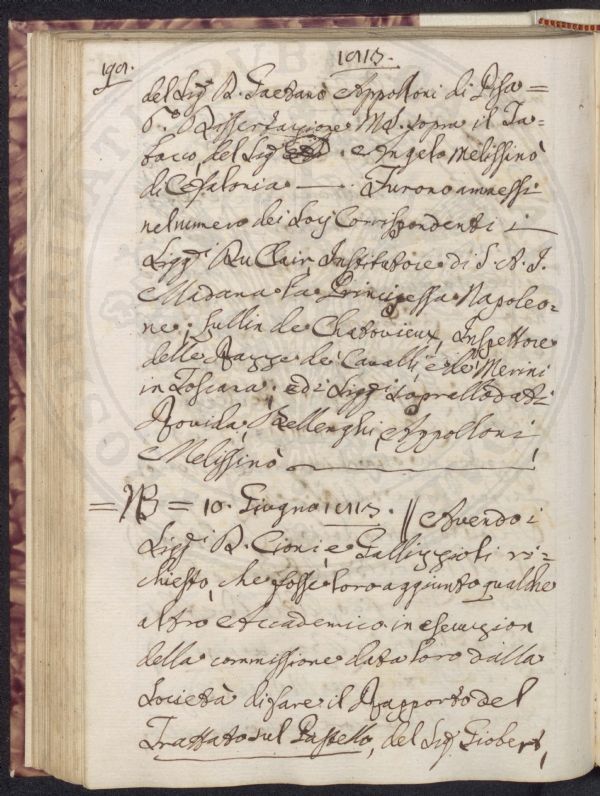 1813.
del Sig.r D. Gaetano Appolloni di Pisa =
6.° Dissertazione MS. sopra il Ta=
bacco, del Sig.r Angelo Melissinò
di Cefalonia — Furono ammessi
nel numero dei Socj Corrispondenti i
Sigg.ri Du Clair, Institutore di S. A. I.
Madama la Principessa Napoleo=
ne; Sullin de Chatovieux, Inspettore
delle Razze de' Cavalli, e de' Merini
in Toscana; ed i Sigg.ri soprallodati
Rovida, Bellenghi, Appolloni,
e Melissinò
= NB = 10. Giugno 1813. // Avendo i
Sigg.ri D. Cioni, e Gallizzioli ri=
chiesto, che fosse loro aggiunto qualche
altro Accademico in esecuzion
della commissione data loro dalla
Società di fare il Rapporto del
Trattato sul Pastello, del Sig.r Giobert,